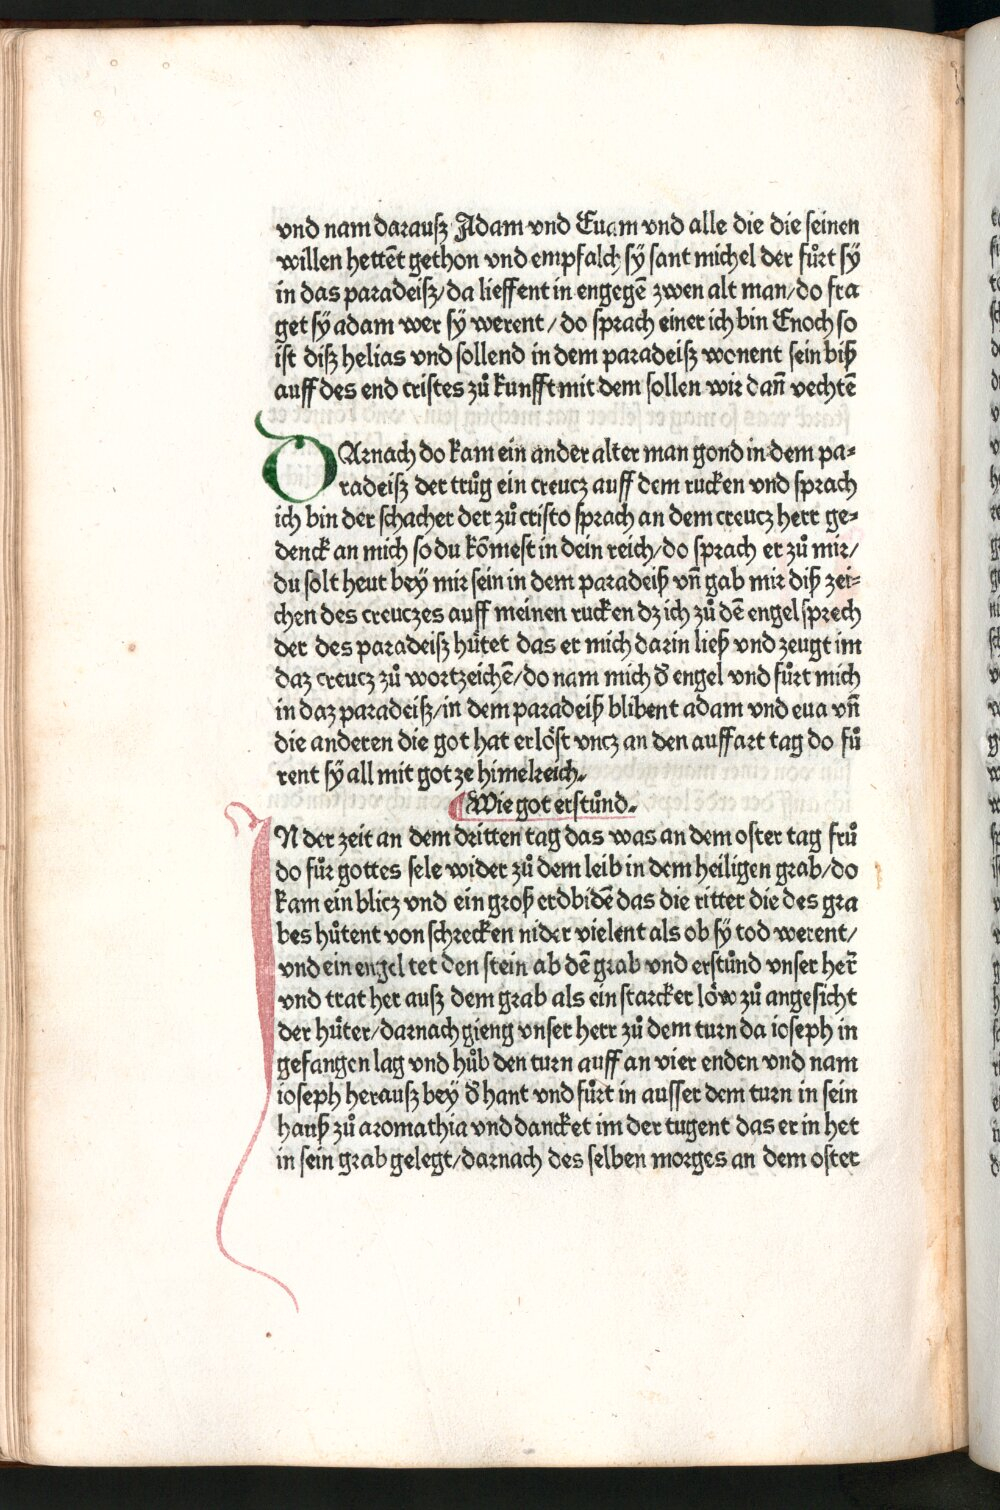 vnd nam darausz Adam vnd Euam vnd alle die die seinen
willen hettēt gethon vnd empfalch sÿ sant michel der fůrt sÿ
in das paradeisz/ da lieffent in engegē zwen alt man/ do fra
get sÿ adam wer sÿ werent / do sprach einer ich bin Enoch so
ist disz helias vnd sollend in dem paradeisz wonent sein biß
auff des end cristes zů kunfft mit dem sollen wir dañ vechtē
DArnach do kam ein ander alter man gond in dem pa⸗
radeisz der trůg ein creucz auff dem rucken vnd sprach
ich bin der schacher der zů cristo sprach an dem creucz herr ge⸗
denck an mich so du kōmest in dein reich/ do sprach er zů mir/
du solt heut bey̋ mir sein in dem paradeiß vñ gab mir diß zei⸗
chen des creuczes auff meinen rucken dz ich zů dē engel sprech
der des paradeisz hűtet das er mich darin ließ vnd zeugt im
daz creucz zů wortzeichē/ do nam mich đ engel vnd fůrt mich
in daz paradeisz/ in dem paradeiß blibent adam vnd eua vñ
die anderen die got hat erlőst vncz an den auffart tag do fů
rent sÿ all mit got ze himelreich.
Wie got erstůnd.
IN der zeit an dem dritten tag das was an dem oster tag frů
do fůr gottes sele wider zů dem leib in dem heiligen grab/ do
kam ein blicz vnd ein groß erdbidē das die ritter die des gra
bes hűtent von schrecken nider vielent als ob sÿ tod werent/
vnd ein engel tet den stein ab dē grab vnd erstůnd vnser her̄
vnd trat her ausz dem grab als ein starcker lőw zů angesicht
der hűter/ darnach gieng vnser herr zů dem turn da ioseph in
gefangen lag vnd hůb den turn auff an vier enden vnd nam
ioseph herausz bey̋ đ hant vnd fůrt in ausser dem turn in sein
hauß zů aromathia vnd dancket im der tugent das er in het
in sein grab gelegt/ darnach des selben morges an dem oster